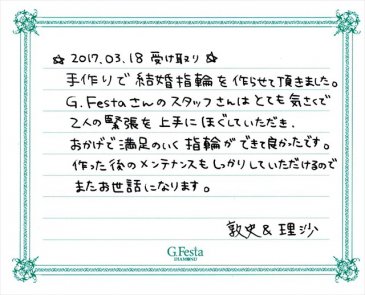 ☆ 2017.03.18 受け取り ☆
手作りで結婚指輪を作らせて頂きました。
G.Festaさんのスタッフさんはとても気さくで
2人の緊張を上手にほぐしていただき、
おかげで満足のいく指輪ができて良かったです。
作った後のメンテナンスもしっかりしていただけるので
またお世話になります。
敦史 & 理沙
G.Festa
DIAMOND